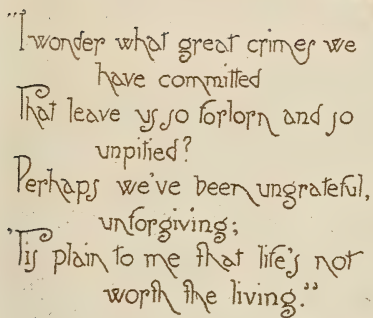 "I wonder what great crimes we
have committed
That leave us so forlorn and so
unpitied?
Perhaps we've been ungrateful,
unforgiving;
'Tis plain to me that life's not
worth the living."